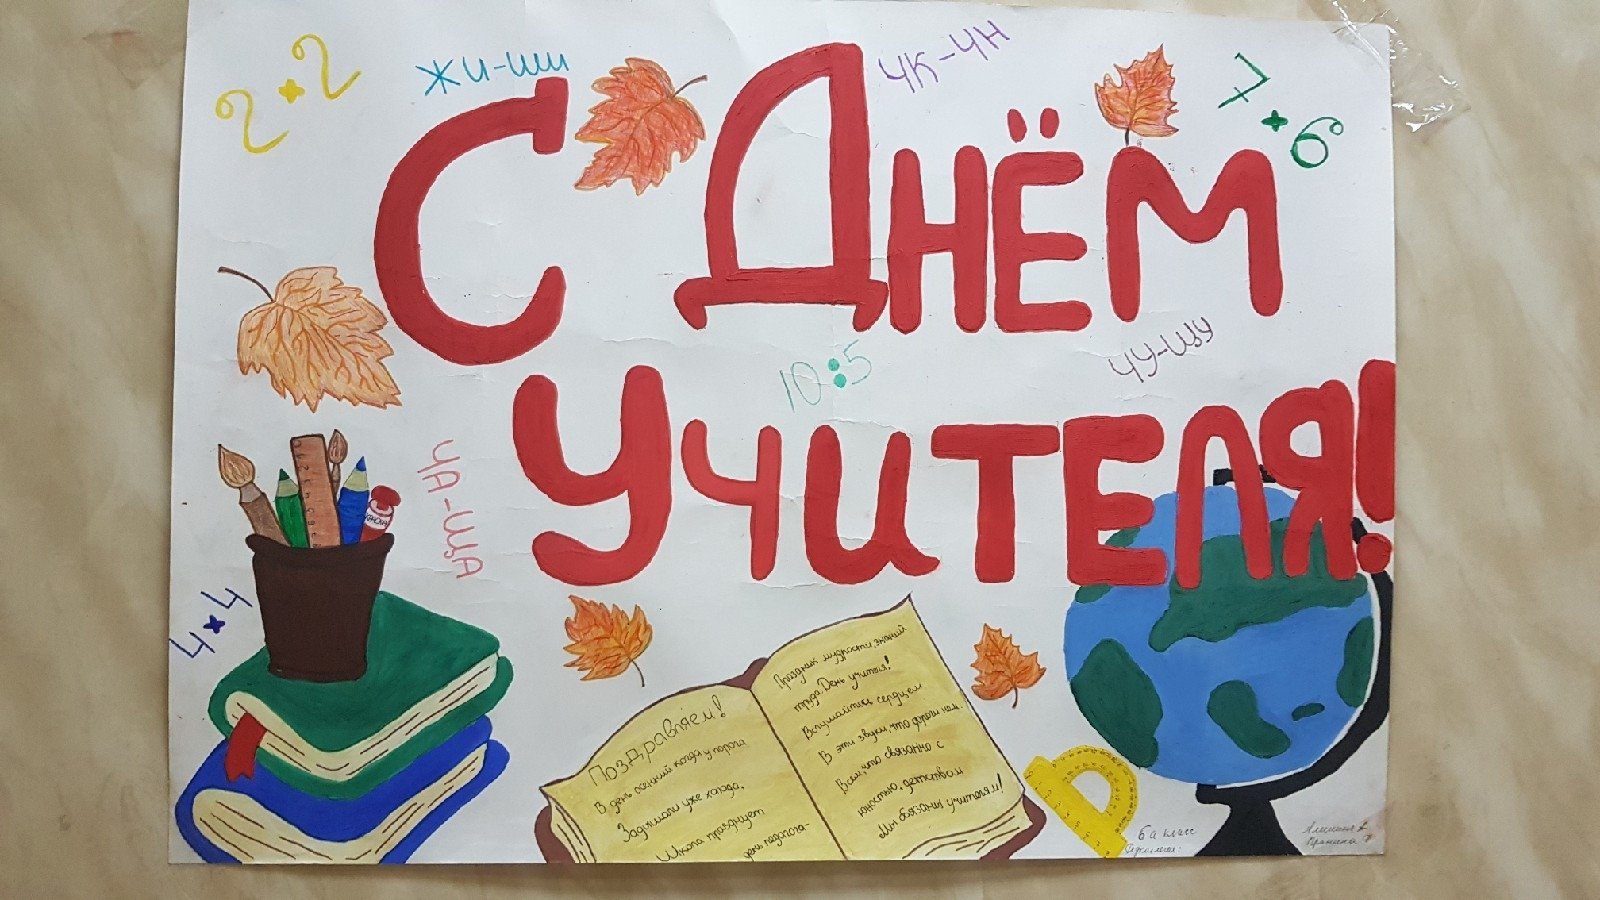 2•2
жи-ши
чк-чн
7•6
С Днём
Учителя!
10:5
чу-щу
ча-ща
4×4
Поздравляем!
В день осенний когда у порога
Задышали уже холода,
Школа празднует
день педагога-
Праздник мудрости, знаний
труда. День учителя!
Вслушайтесь сердцем
В эти звуки, что дороги нам.
Всем, что связанно с
юностью, детством
Мы обязаны учителям!
6а класс